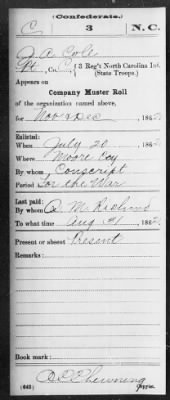 (Confederate.)
C 3 N.C.
J. A. Cole
Pt., Co. C, 3 Reg't North Carolina Inf.
(State Troops.)
Appears on
Company Muster Roll
of the organization named above,
for Nov & Dec, 186
Enlisted:
When July 20, 186
Where Moore Coy
By whom Conscript
Period for the War
Last paid:
By whom M.
To what time Aug 31, 186
Present or absent Present
Remarks:
Book mark:
(642) Copyist.